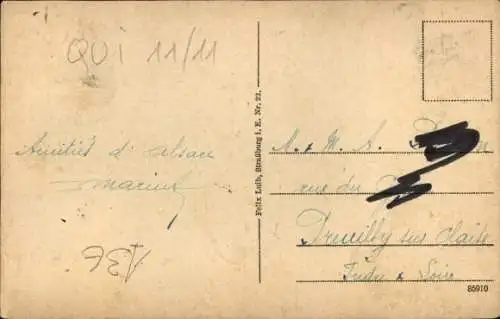 QUI 11/11
Amitiés d'Alsace
Marius
13E
Felix Luib, Straßburg i. E. Nr. 22.
M. & M. A.
rue du
Preuilly sur Claise
Indre & Loire
85910